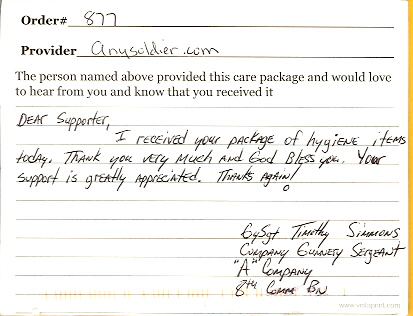 Order# 877
Provider anysoldier.com
The person named above provided this care package and would love
to hear from you and know that you received it
DEAR Supporter,
I received your package of hygiene items
today. Thank you very much and God Bless you. Your
support is greatly appreciated. Thanks again!
GySgt Timothy Simmons
Company Gunnery Sergeant
"A" Company
8th Comm BN
www.vistaprint.com